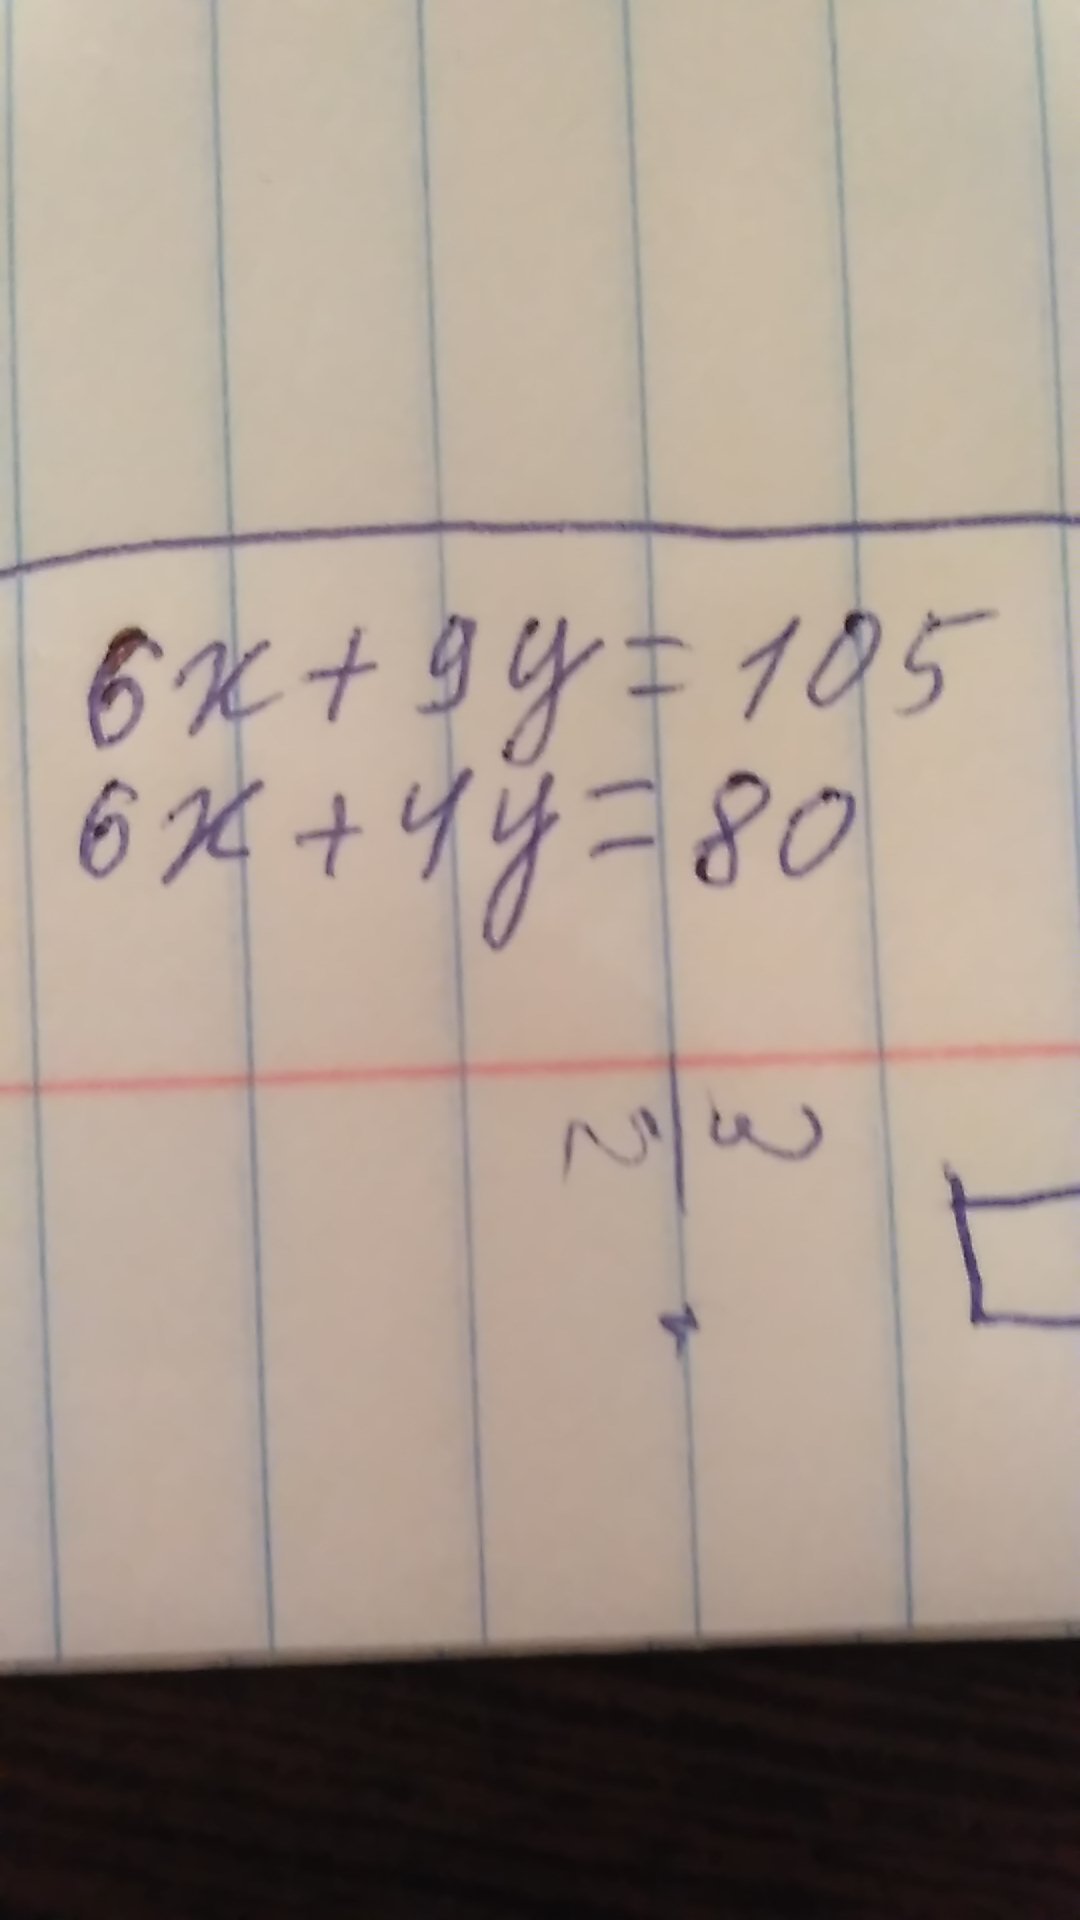 6x+9y=105
6x+4y=80